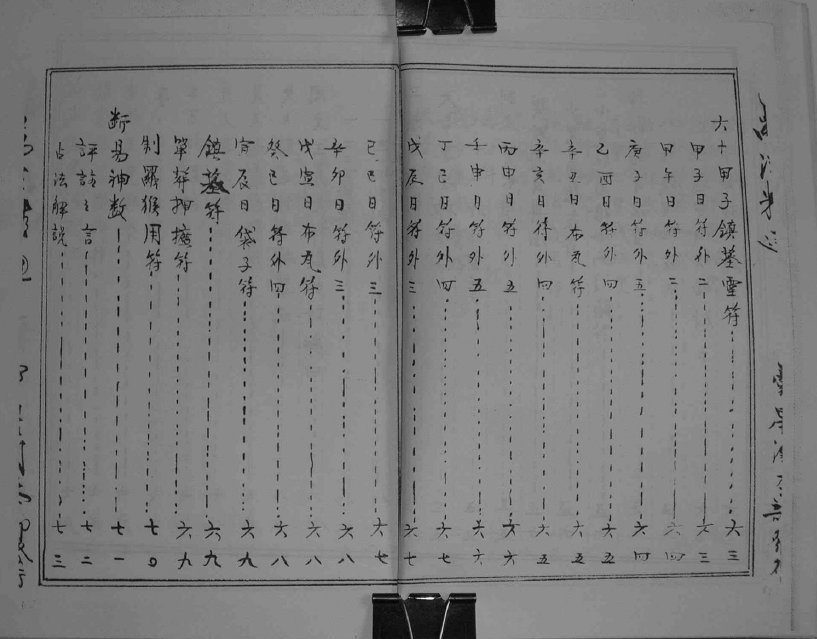 六十甲子鎮墓靈符 六三
甲子日符外二 六三
甲午日符外二 六四
庚子日符外五 六四
乙酉日符外四 六五
辛丑日布瓦符 六五
辛亥日符外四 六五
丙申日符外五 六六
壬申日符外五 六六
丁巳日符外四 六七
戊辰日符外三 六七
己巳日符外三 六七
辛卯日符外三 六八
戊寅日布瓦符 六八
癸巳日符外四 六八
寅辰日袋子符 六九
鎮墓符 六九
符 六九
制羅猴用符 七0
断易神数 七一
言 七二
占法解説 七三